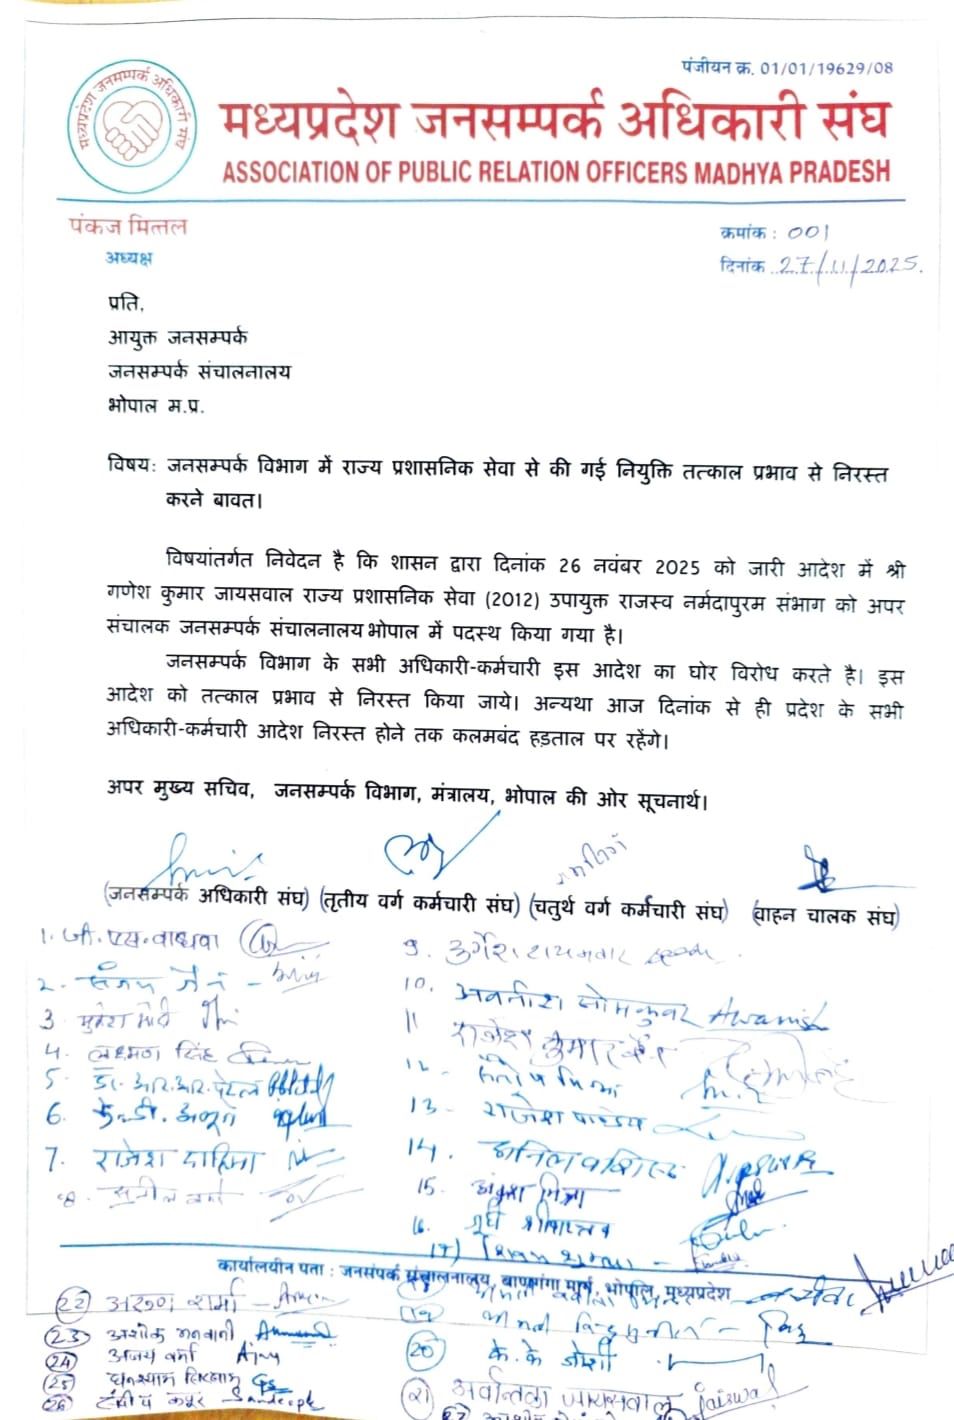 पंजीयन क्र. 01/01/19629/08
मध्यप्रदेश जनसम्पर्क अधिकारी संघ
मध्यप्रदेश जनसम्पर्क अधिकारी संघ
ASSOCIATION OF PUBLIC RELATION OFFICERS MADHYA PRADESH
पंकज मित्तल
अध्यक्ष
क्रमांक : 001
दिनांक 27/11/2025.
प्रति,
आयुक्त जनसम्पर्क
जनसम्पर्क संचालनालय
भोपाल म.प्र.
विषय: जनसम्पर्क विभाग में राज्य प्रशासनिक सेवा से की गई नियुक्ति तत्काल प्रभाव से निरस्त
करने बावत।
विषयांतर्गत निवेदन है कि शासन द्वारा दिनांक 26 नवंबर 2025 को जारी आदेश में श्री
गणेश कुमार जायसवाल राज्य प्रशासनिक सेवा (2012) उपायुक्त राजस्व नर्मदापुरम संभाग को अपर
संचालक जनसम्पर्क संचालनालय भोपाल में पदस्थ किया गया है।
जनसम्पर्क विभाग के सभी अधिकारी-कर्मचारी इस आदेश का घोर विरोध करते है। इस
आदेश को तत्काल प्रभाव से निरस्त किया जाये। अन्यथा आज दिनांक से ही प्रदेश के सभी
अधिकारी-कर्मचारी आदेश निरस्त होने तक कलमबंद हड़ताल पर रहेंगे।
अपर मुख्य सचिव, जनसम्पर्क विभाग, मंत्रालय, भोपाल की ओर सूचनार्थ।
(जनसम्पर्क अधिकारी संघ) (तृतीय वर्ग कर्मचारी संघ) (चतुर्थ वर्ग कर्मचारी संघ) (वाहन चालक संघ)
1. जी. एस. वाधवा
2. संजय जैन
3. मुकेश मोदी
4. लक्ष्मण सिंह
5. डॉ. आर. आर. पटेल
6.
7. राजेश दाहिमा
8. सुनील वर्मा
9.
10. अवनीश सोमकुवर Awanish
11 राजेश कुमार
12. संतोष मिश्रा
13- राजेश पाण्डेय
14. अनिल वशिष्ठ
15. अंकुश मिश्रा
16.
17)
कार्यालयीन पता : जनसंपर्क संचालनालय, बाणगंगा मार्ग, भोपाल, मध्यप्रदेश
19
20 के. के जोशी
21 अवन्तिका जायसवाल Jaiswal
22 अरुण शर्मा
23 अशोक मनवानी
24 अजय वर्मा Ajay
25 घनश्याम
26 संदीप कपूर Sandeep
27